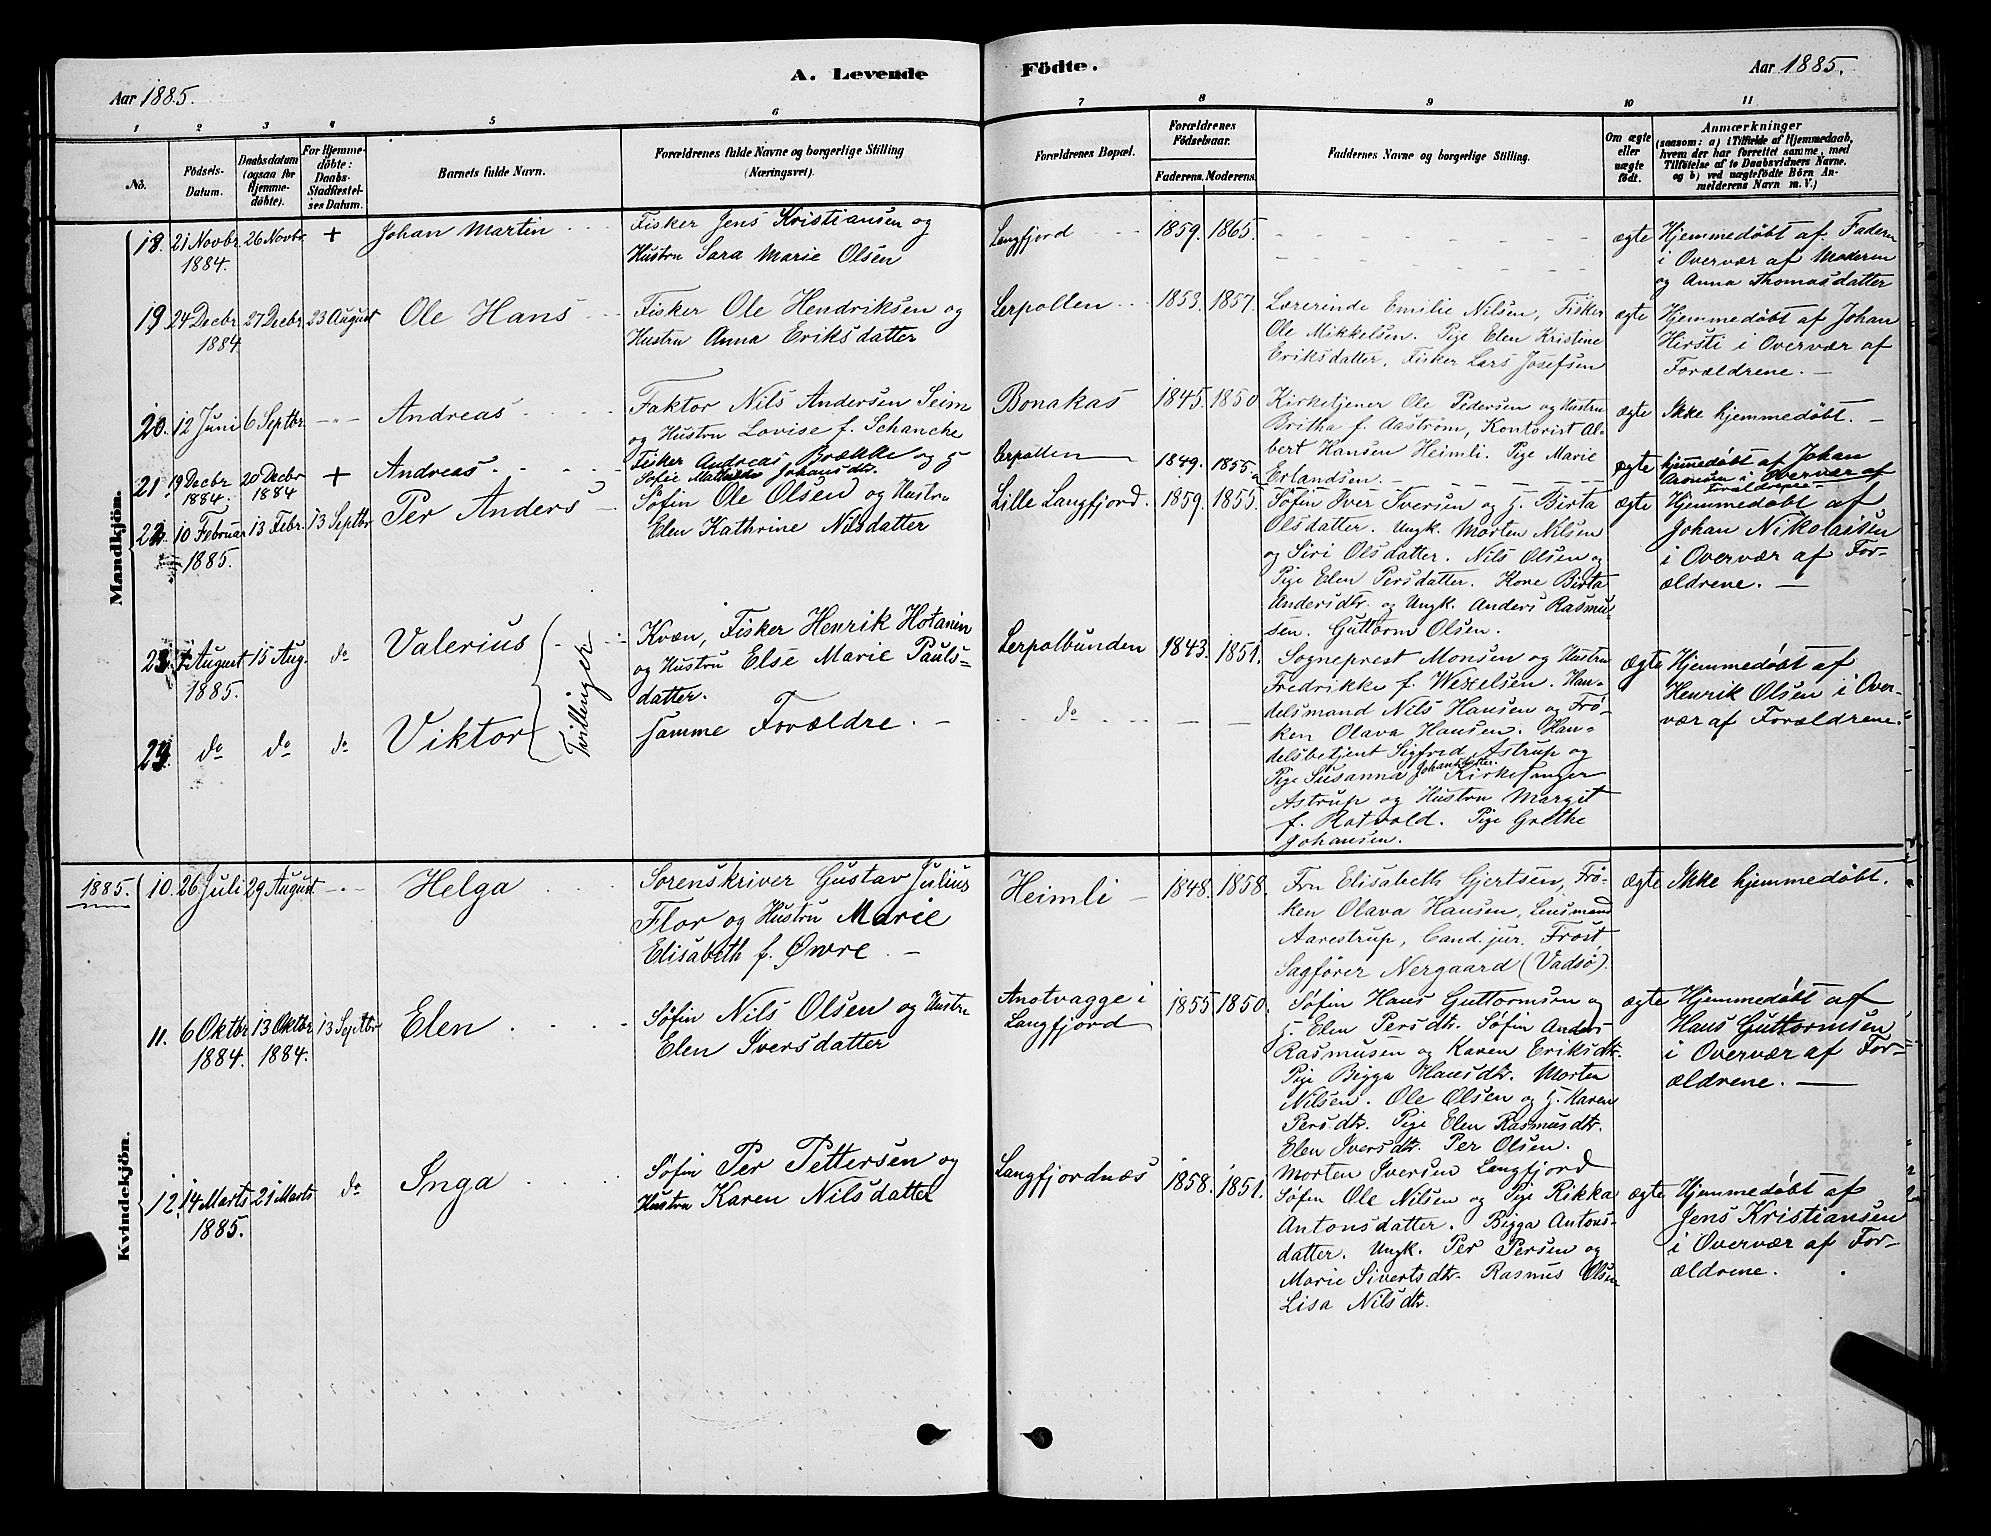 A. Levende Födte.
Aar 1885.
Aar 1885.
1 2 3 4 5 6 7 8 9 10 11
No.
Födsels-Datum.
Daabsdatum (ogsaa for Hjemmedöbte).
For Hjemmedöbte: Daabs-Stadfæstelses Datum.
Barnets fulde Navn.
Forældrenes fulde Navne og borgerlige Stilling (Næringsvei).
Forældrenes Bopæl.
Forældrenes Födselsaar.
Faderens. Moderens.
Faddernes Navne og borgerlige Stilling.
Om ægte eller uægte födt.
Anmærkninger
(saasom: a) i Tilfælde af Hjemmedaab, hvem der har forrettet samme, med Tilföielse af to Daabsvidners Navne. og b) ved uægtefödte Börn Anmelderens Navn m. V.)
Mandkjön.
18. 21 Novbr 1884. 26 Novbr + Johan Martin
Fisker Jens Kristiansen og
Hustru Sara Marie Olsen
Langfjord 1859. 1865.
ægte
Hjemmedøbt af Faderen
i Overvær af Moderen
og Anna Thomasdatter
19 24 Decbr 1884 27 Decbr 23 August Ole Hans
Fisker Ole Hendriksen og
Hustru Anna Eriksdatter
Lerpollen 1853. 1857.
Lærerinde Emilie Nilsen, Fisker
Ole Mikkelsen. Pige Elen Kristine
Eriksdatter, Fisker Lars Josefsen
ægte
Hjemmedøbt af Johan
Hirsti i Overvær af
Forældrene. —
20. 12 Juni 6 Septbr. Andreas
Faktor Nils Andersen Seim
og Hustru Lovise f. Schanche
Bonakas 1845. 1850
Kirketjener Ole Pedersen og Hustru
Britha f. Aaström, Kontorist Al-
bert Hansen Heimli. Pige Marie
Erlandsen.
ægte
Ikke hjemmedøbt. —
21 19 Decbr 1884. 20 Decbr 1884 + Andreas
Fisker Andreas Brække og H
Sofie Mathilde Johansdtr.
Lerpollen 1849. 1855.
ægte
hjemmedøbt af Johan
Aronsen i Overvær af
Forældrene
22. 10 Februar 1885. 13 Febr. 13 Septbr Per Anders
Søfin Ole Olsen og Hustru
Elen Kathrine Nilsdatter
Lille Langfjord. 1859. 1855.
Søfin Iver Iversen og H. Birta
Olsdatter. Ungk. Morten Nilsen
og Siri Olsdatter. Nils Olsen og
Pige Elen Persdatter. Kone Birta
Andersdtr. og Ungk. Anders Rasmu-
sen. Guttorm Olsen.
ægte
Hjemmedøbt af
Johan Nikolaisen
i Overvær af For-
ældrene. —
23. 7 August 1885. 15 Aug. do Valerius
Tvillinger
Kvæn, Fisker Henrik Hotanin
og Hustru Else Marie Pauls-
datter.
Lerpolbunden 1843. 1851.
Sogneprest Monsen og Hustru
Fredrikke f. Wesselsen. Han-
delsmand Nils Hansen og Frø-
ken Olava Hansen. Han-
delsbetjent Sigfred Astrup og
Pige Susanna Johansdatter. Kirkesanger
Astrup og Hustru Margit
f. Ratvold. Pige Grethe
Johansen.
ægte
Hjemmedøbt af
Henrik Olsen i Over-
vær af Forældrene.
24. do do do Viktor
samme Forældre. —
do — —
Kvindekjön.
1885.
10. 26 Juli 29 August Helga
Sorenskriver Gustav Julius
Flor og Hustru Marie
Elisabeth f. Øwre. —
Heimli — 1848. 1858.
Fru Elisabeth Gjertsen, Frø-
ken Olava Hansen, Lensmand
Aarestrup, Cand. jur. Frost,
Sagfører Nergaard (Vadsø).
ægte
Ikke hjemmedøbt.
11. 6 Oktbr 1884. 13 Oktbr 1884. 13 Septbr Elen
Søfin Nils Olsen og Hustru
Elen Iversdatter
Anotvagge i
Langfjord
1855 1850.
Søfin Hans Guttormsen og
H. Elen Persdtr. Søfin Anders
Rasmusen og Karen Eriksdtr.
Pige Bigga Hansdtr. Morten
Nilsen. Ole Olsen og H. Karen
Persdtr. Pige Elen Rasmusdtr.
Elen Iversdtr. Per Olsen.
Morten Iversen Langfjord
ægte
Hjemmedøbt af
Hans Guttormsen
i Overvær af For-
ældrene. —
12. 14 Marts 1885. 21 Marts do Inga
Søfin Per Pettersen og
Hustru Karen Nilsdatter
Langfjordnæs 1858. 1851.
Søfin Ole Nilsen og Pige Rikka
Antonsdatter. Bigga Antons-
datter. Ungk. Per Persen og
Marie Sivertsdtr. Rasmus Olsen
Lisa Nilsdtr.
ægte
Hjemmedøbt af
Jens Kristiansen
i Overvær af For-
ældrene.